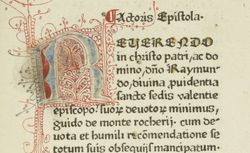 Actoris Epistola.
REVERENDO
in christo patri, ac do
mino, dño Raymun
do, diuina ꝓuidentia
sancte sedis valentie
episcopo. suoꝝ deuotoꝝ minimus,
guido de monte rocherij. cum de
uota et humili recõmendatione se
totum suis obsequijs mancipatum.